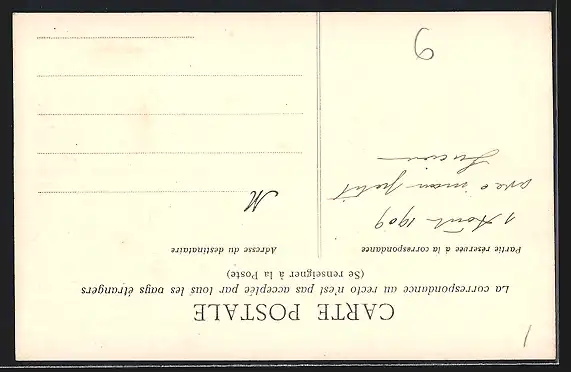 CARTE POSTALE
La correspondance au recto n'est pas acceptée par tous les pays étrangers
(Se renseigner à la Poste)
Partie réservée à la correspondance
Adresse du destinataire
1 Août 1909
avec mon petit
Lucien
M
9
1